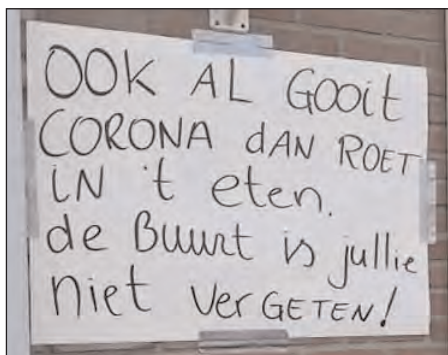 OOK AL GOOit
CORONA dAN ROET
iN 't eten.
de Buurt is jullie
niet VerGETEN!